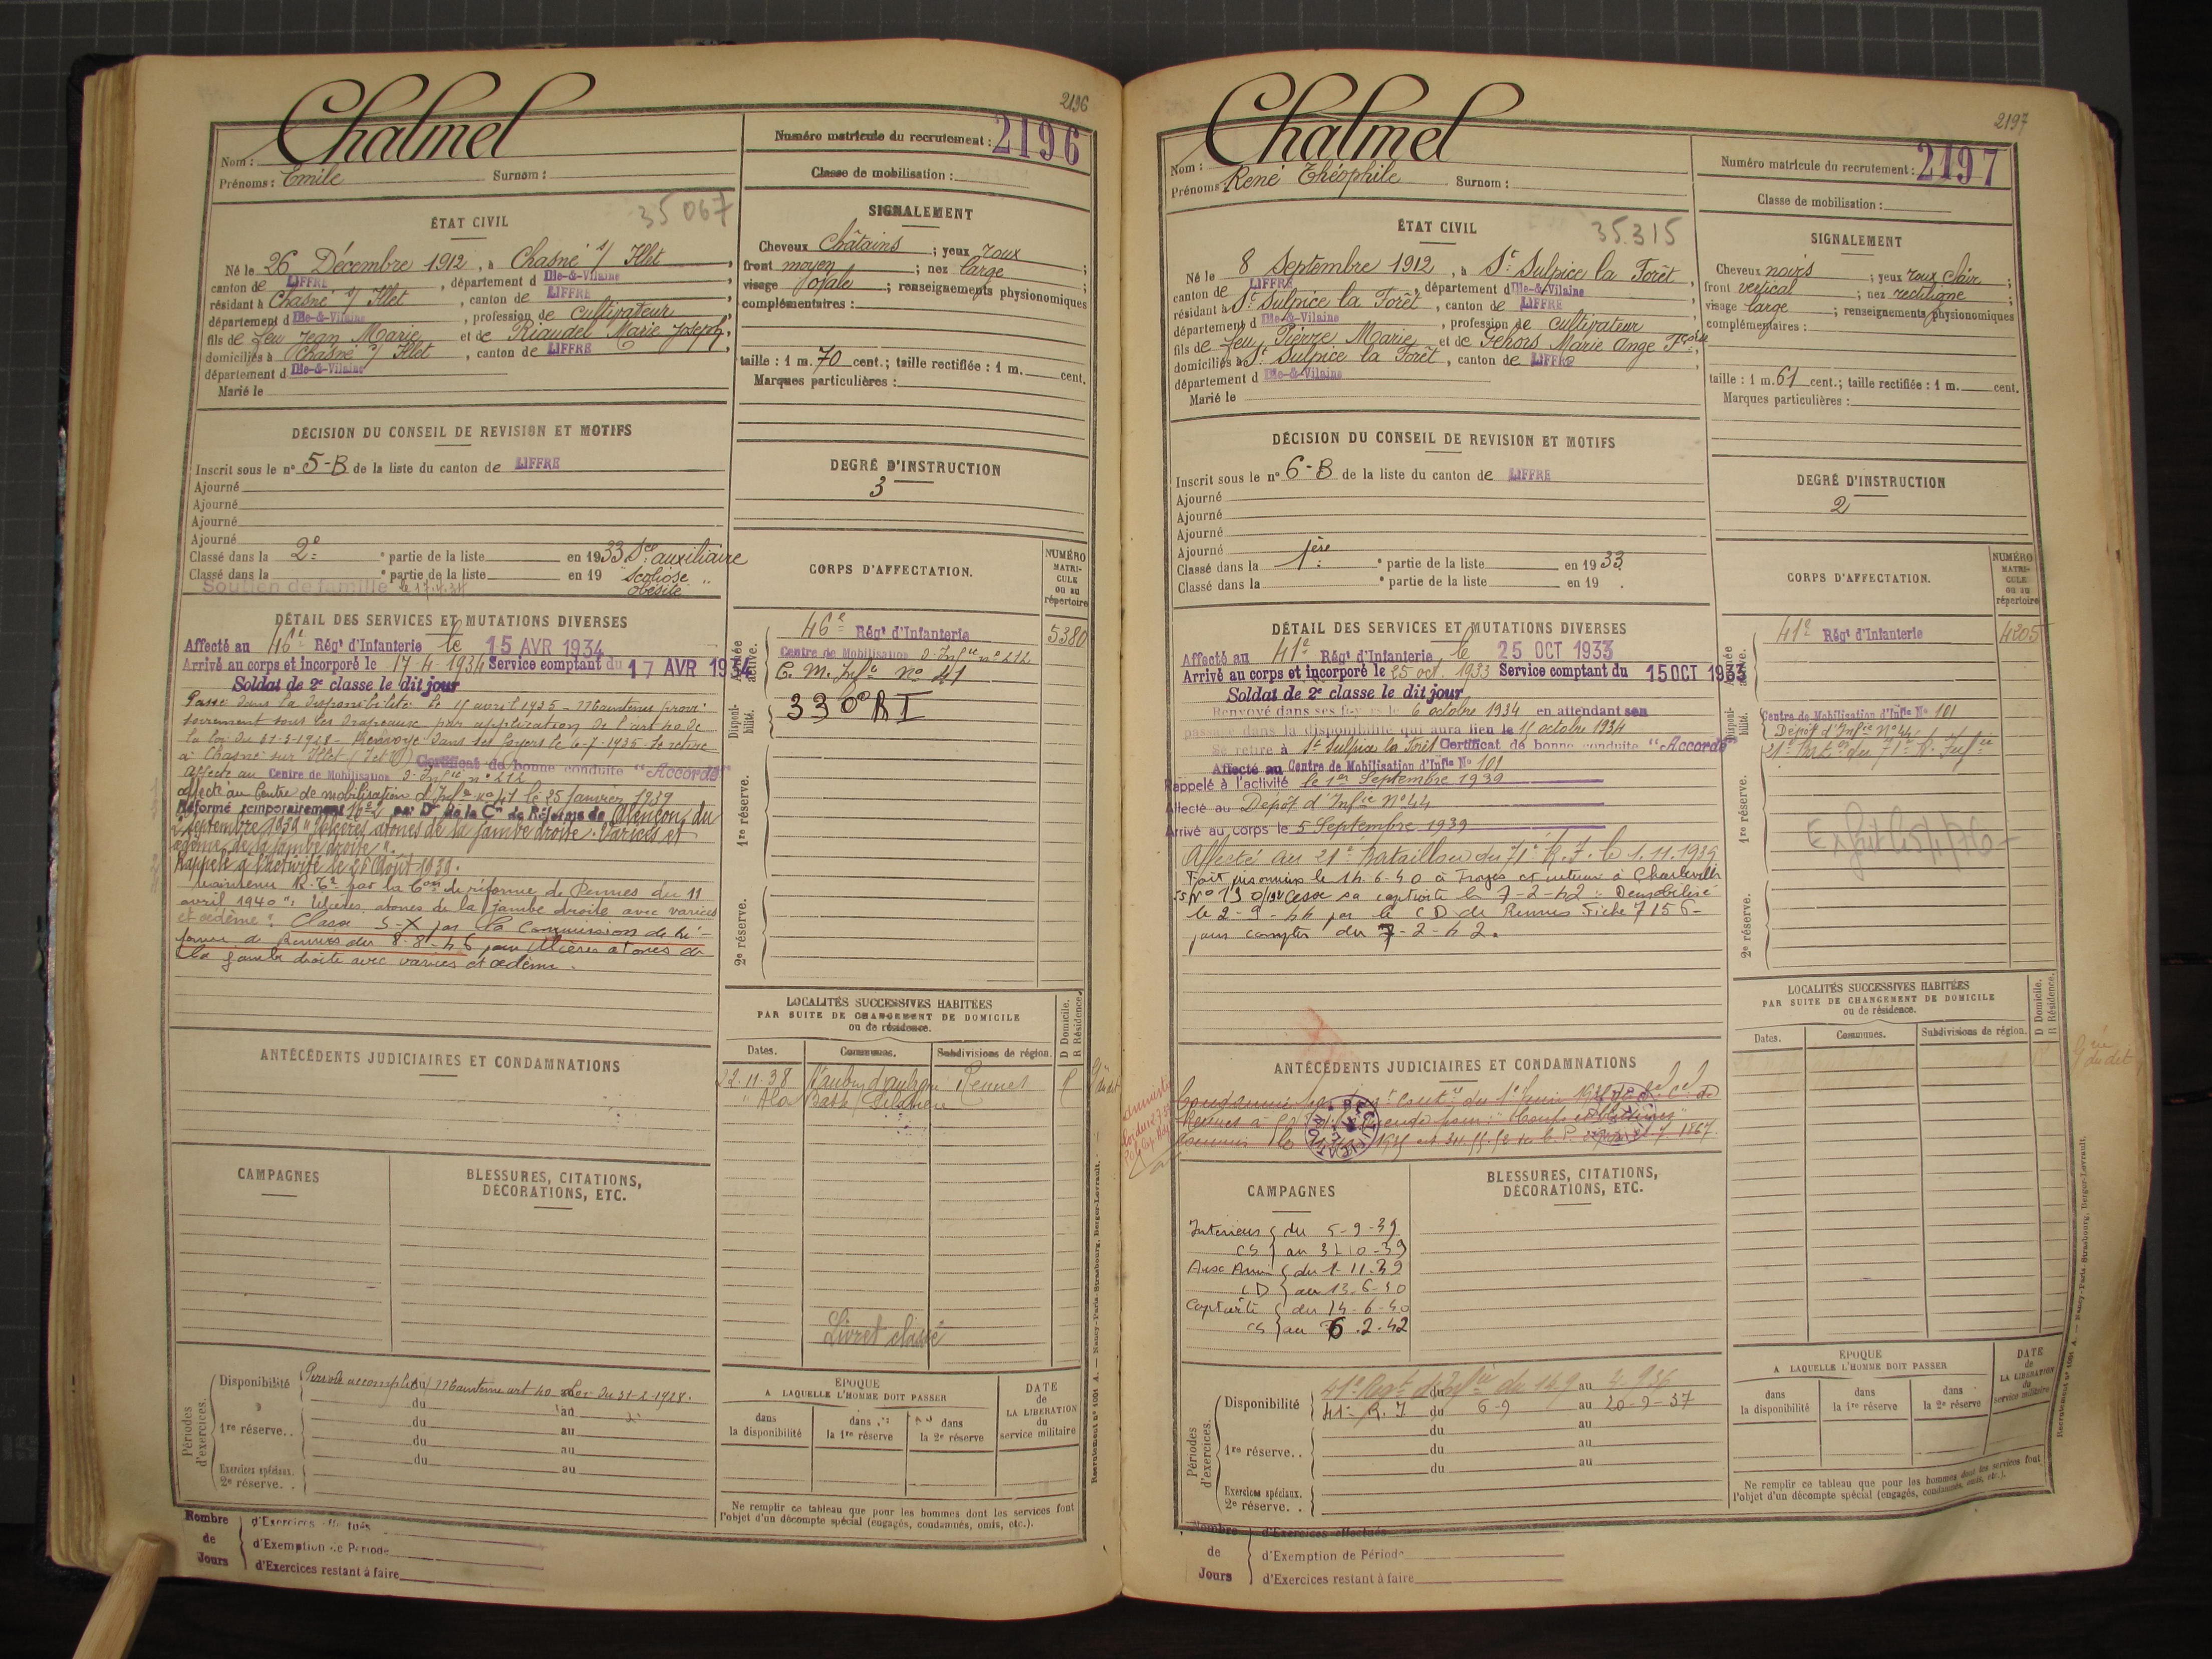 2196
Chalmel
Nom :
Prénoms : Emile Surnom :
Numéro matricule du recrutement : 2196
Classe de mobilisation :
ÉTAT CIVIL
35 067
Né le 26 Décembre 1912, à Chasné s/ Illet,
canton de LIFFRE, département d Ille-&-Vilaine
résidant à Chasné s/ Illet, canton de LIFFRE
département d Ille-&-Vilaine, profession de cultivateur
fils de feu Jean Marie et de Riaudel Marie Joseph,
domiciliés à Chasné s/ Illet, canton de LIFFRE
département d Ille-&-Vilaine
Marié le
SIGNALEMENT
Cheveux Châtains ; yeux roux ;
front moyen ; nez large ;
visage ovale ; renseignements physionomiques
complémentaires :
taille : 1 m. 70 cent.; taille rectifiée : 1 m. cent.
Marques particulières :
DÉCISION DU CONSEIL DE REVISION ET MOTIFS
Inscrit sous le n° 5-B de la liste du canton de LIFFRE
Ajourné
Ajourné
Ajourné
Ajourné
Classé dans la 2e partie de la liste en 1933 Sce auxiliaire
Classé dans la partie de la liste en 19 Scoliose
Soutien de famille le 17.4.34 obésité
DEGRÉ D'INSTRUCTION
3
DÉTAIL DES SERVICES ET MUTATIONS DIVERSES
Affecté au 46e Régt d'Infanterie le 15 AVR 1934
Arrivé au corps et incorporé le 17 4 1934 Service comptant du 17 AVR 1934
Soldat de 2e classe le dit jour
Passé dans la disponibilité le 15 avril 1935 - Maintenu provi-
soirement sous les drapeaux par application de l'art 40 de
la loi du 31-3-1928 - Renvoyé dans ses foyers le 6-7-1935 Se retire
à Chasné sur Illet (I et V) Certificat de bonne conduite "Accordé"
Affecté au Centre de Mobilisation d'Infie n° 212
affecté au Centre de mobilisation d'Infie n° 41 le 25 Janvier 1939
Réformé temporairement N° 2 par Don de la Con de Réforme de Alençon du
2 septembre 1939 "Ulcères atones de la jambe droite. Varices et
oedème de la jambe droite".
Rappelé à l'activité le 26 Août 1939.
Maintenu R.T2 par la Com de réforme de Rennes du 11
avril 1940 "Ulcères atones de la jambe droite avec varices
et oedème". Classé S-X par la Commission de Ré-
forme de Rennes du 8-8-46 pour Ulcères atones de
la jambe droite avec varices et oedème.
CORPS D'AFFECTATION.
NUMÉRO MATRI-CULE ou au répertoire
Armée active.
46e Régt d'Infanterie 5380
Centre de Mobilisation d'Infie n° 212
C. M. Infie n° 41
Disponi-bilité.
330e RI
1re réserve.
2e réserve.
LOCALITÉS SUCCESSIVES HABITÉES
PAR SUITE DE CHANGEMENT DE DOMICILE
ou de résidence.
D Domicile.
R Résidence.
Dates. Communes. Subdivisions de région.
22.11.38 St aubin d'aubigné Rennes R
ANTÉCÉDENTS JUDICIAIRES ET CONDAMNATIONS
CAMPAGNES
BLESSURES, CITATIONS,
DÉCORATIONS, ETC.
Livret classé
Périodes d'exercices.
Disponibilité Période accomplie (Maintenu art 40 Loi du 31-3-1928.
du au
1re réserve.. du au
du au
Exercices spéciaux. du au
2e réserve. .
ÉPOQUE
A LAQUELLE L'HOMME DOIT PASSER
dans la disponibilité
dans la 1re réserve
dans la 2e réserve
DATE de LA LIBÉRATION du service militaire
Ne remplir ce tableau que pour les hommes dont les services font
l'objet d'un décompte spécial (engagés, condamnés, omis, etc.).
Nombre de Jours
d'Exercices effectués
d'Exemption de Période
d'Exercices restant à faire
Recrutement n° 1001 A. — Nancy-Paris-Strasbourg, Berger-Levrault.
2197
Chalmel
Nom :
Prénoms : René Théophile Surnom :
Numéro matricule du recrutement : 2197
Classe de mobilisation :
ÉTAT CIVIL
35.315
Né le 8 Septembre 1912, à St Sulpice la Forêt,
canton de LIFFRE, département d Ille-&-Vilaine
résidant à St Sulpice la Forêt, canton de LIFFRE
département d Ille-&-Vilaine, profession de cultivateur
fils de feu Pierre Marie et de Gehors Marie Ange Fçoise
domiciliés à St Sulpice la Forêt, canton de LIFFRE
département d Ille-&-Vilaine
Marié le
SIGNALEMENT
Cheveux noirs ; yeux roux clair ;
front vertical ; nez rectiligne ;
visage large ; renseignements physionomiques
complémentaires :
taille : 1 m. 61 cent.; taille rectifiée : 1 m. cent.
Marques particulières :
DÉCISION DU CONSEIL DE REVISION ET MOTIFS
Inscrit sous le n° 6-B de la liste du canton de LIFFRE
Ajourné
Ajourné
Ajourné
Ajourné
Classé dans la 1ère partie de la liste en 1933
Classé dans la partie de la liste en 19 .
DEGRÉ D'INSTRUCTION
2
DÉTAIL DES SERVICES ET MUTATIONS DIVERSES
Affecté au 41e Régt d'Infanterie le 25 OCT 1933
Arrivé au corps et incorporé le 25 oct. 1933 Service comptant du 15 OCT 1933
Soldat de 2e classe le dit jour
Renvoyé dans ses foyers le 6 octobre 1934 en attendant son
passage dans la disponibilité qui aura lieu le 15 octobre 1934
Se retire à St Sulpice la Forêt Certificat de bonne conduite "Accordé"
Affecté au Centre de Mobilisation d'Infie N° 101
Rappelé à l'activité le 1er Septembre 1939
Affecté au Dépôt d'Infie N° 44
Arrivé au corps le 5 Septembre 1939
Affecté au 21e Bataillon du 71e R.I. le 1.11.1939
Fait prisonnier le 14-6-40 à Troyes et interné à Charleville
Cesse sa captivité le 7-2-42. Démobilisé
le 2-9-44 par le CD de Rennes Fiche 7156-
pour compter du 7-2-42.
CORPS D'AFFECTATION.
NUMÉRO MATRI-CULE ou au répertoire
Armée active.
41e Régt d'Infanterie 4205
Disponi-bilité.
Centre de Mobilisation d'Infie N° 101
Dépôt d'Infie N° 44
21e Bat. on du 71e R. Infie
1re réserve.
2e réserve.
LOCALITÉS SUCCESSIVES HABITÉES
PAR SUITE DE CHANGEMENT DE DOMICILE
ou de résidence.
D Domicile.
R Résidence.
Dates. Communes. Subdivisions de région.
ANTÉCÉDENTS JUDICIAIRES ET CONDAMNATIONS
CAMPAGNES
Intérieur du 5-9-39
CS au 31-10-39
Aux Armées du 1-11-39
CD au 13-6-40
Captivité du 14-6-40
CS au 6.2.42
BLESSURES, CITATIONS,
DÉCORATIONS, ETC.
Périodes d'exercices.
Disponibilité 41e Régt d'Infie du 14 9 au 4-936
41e R.I du 6-9 au 20-9-37
du au
1re réserve.. du au
du au
Exercices spéciaux.
2e réserve. .
ÉPOQUE
A LAQUELLE L'HOMME DOIT PASSER
dans la disponibilité
dans la 1re réserve
dans la 2e réserve
DATE de LA LIBÉRATION du service militaire
Ne remplir ce tableau que pour les hommes dont les services font
l'objet d'un décompte spécial (engagés, condamnés, omis, etc.).
Nombre de Jours
d'Exercices effectués
d'Exemption de Période
d'Exercices restant à faire
Recrutement n° 1001 A. — Nancy-Paris-Strasbourg, Berger-Levrault.